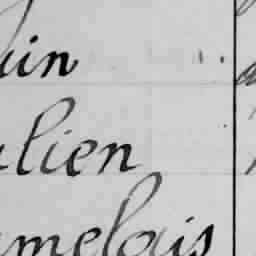 uin
lien
melais